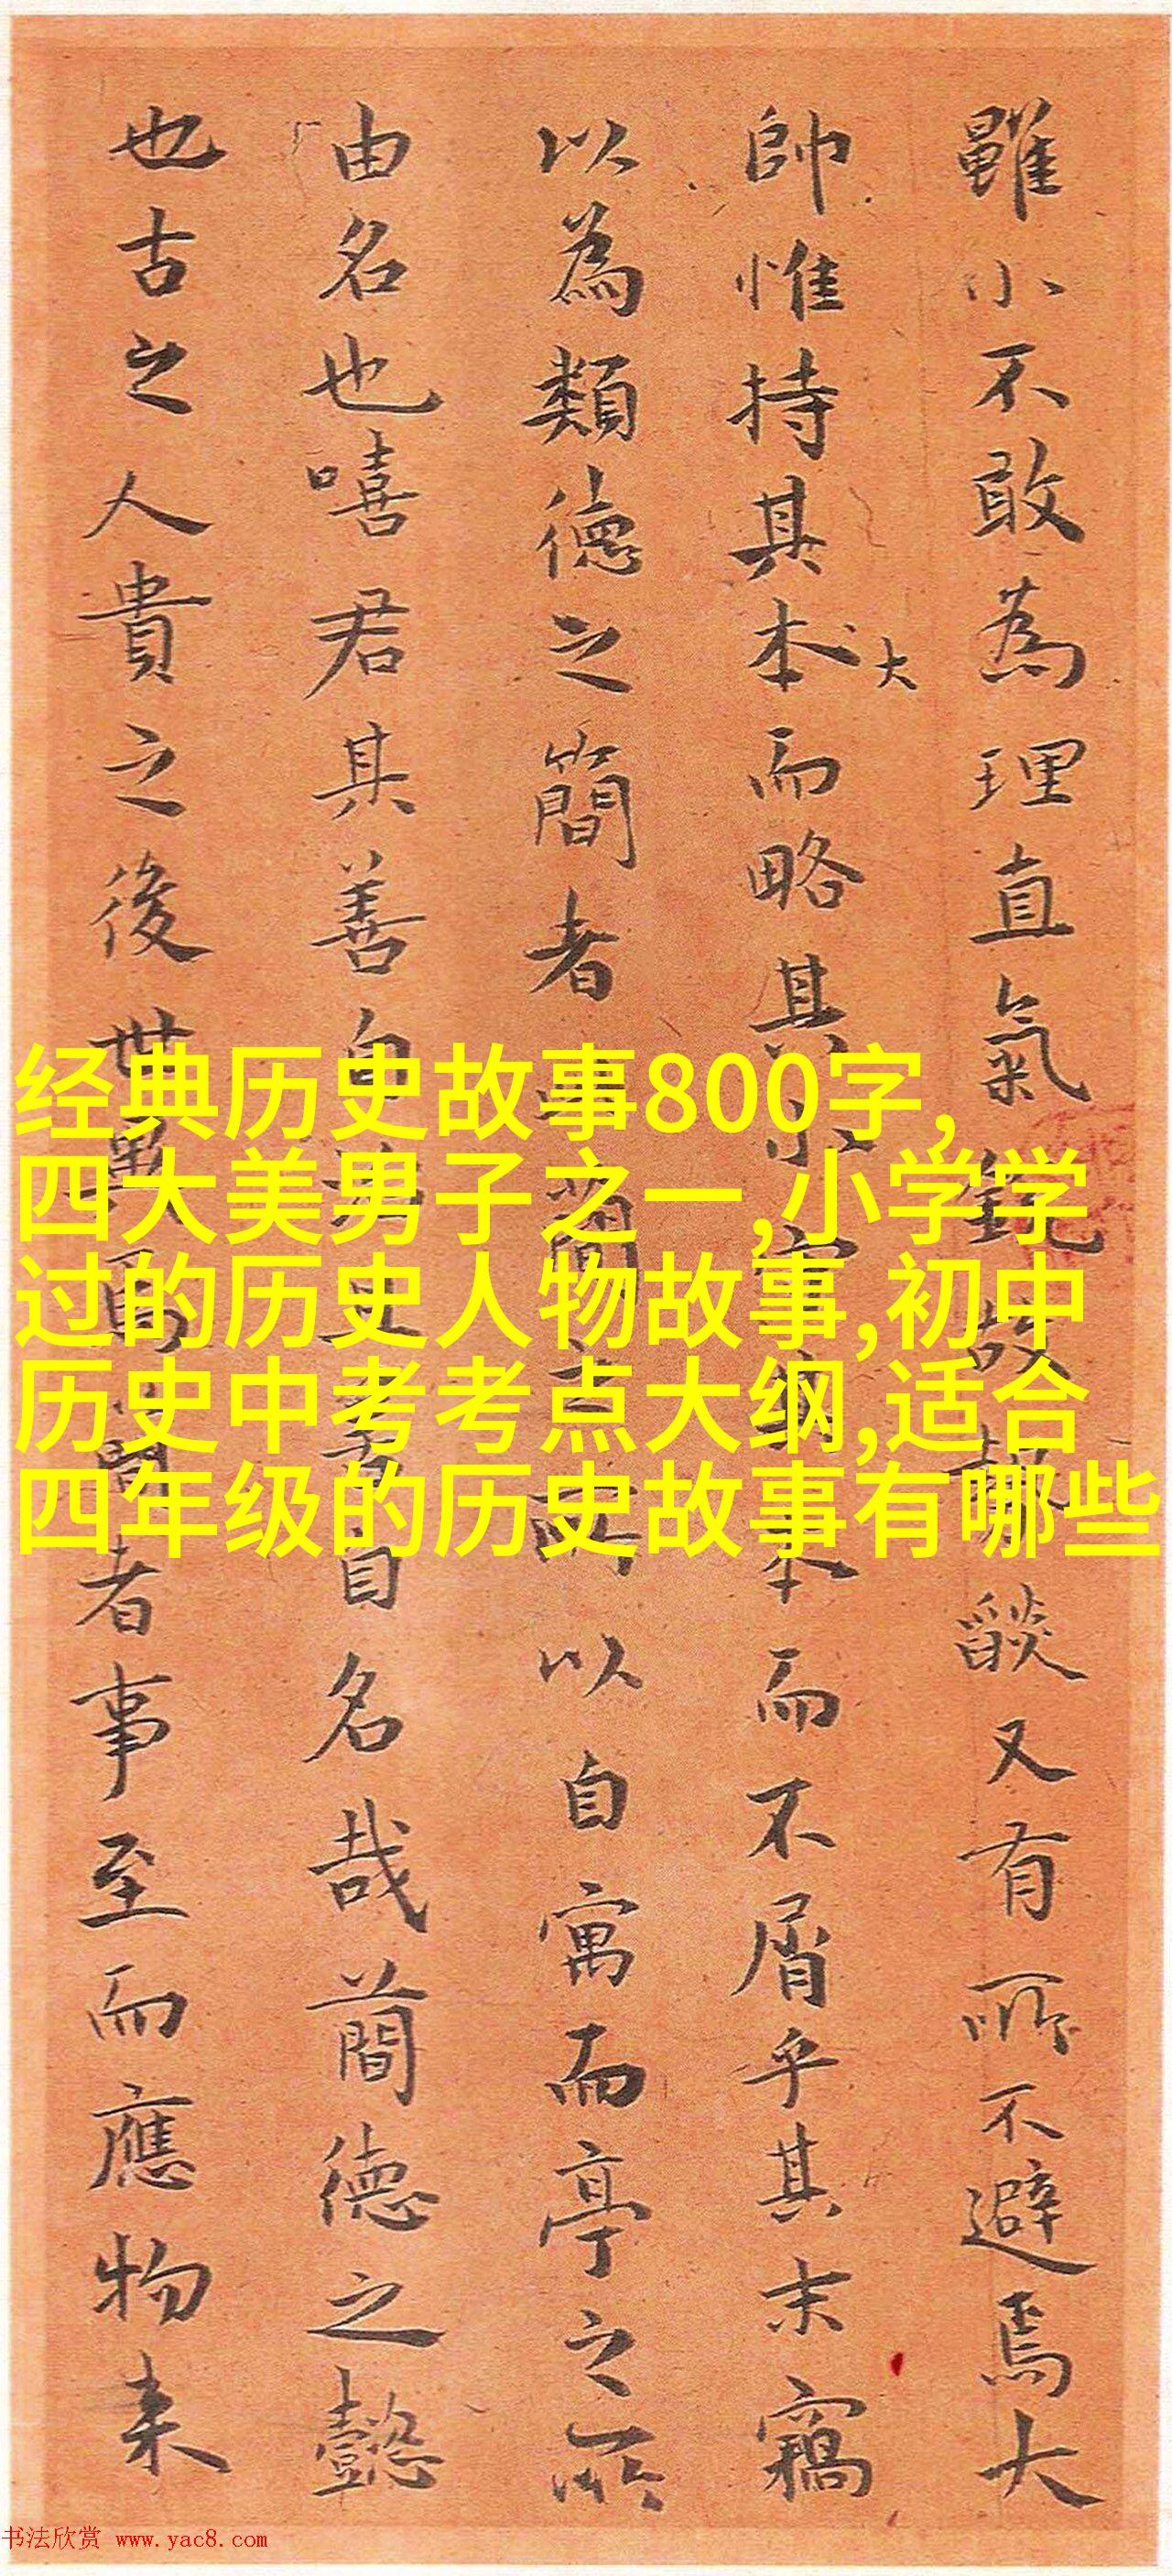 雖小不敢為理直氣銳故燄又有所不避焉大
帥惟持其本大而略其小本而不屑乎其末竊
以為類德之簡者簡所以自寓而亭之所
由名也嘻君其善自自名哉簡德之懿
也古之人貴之後世者事至而應物来
经典历史故事800字,
四大美男子之一,小学学
过的历史人物故事,初中
历史中考考点大纲,适合
四年级的历史故事有哪些
书法欣赏 www.yac8.com